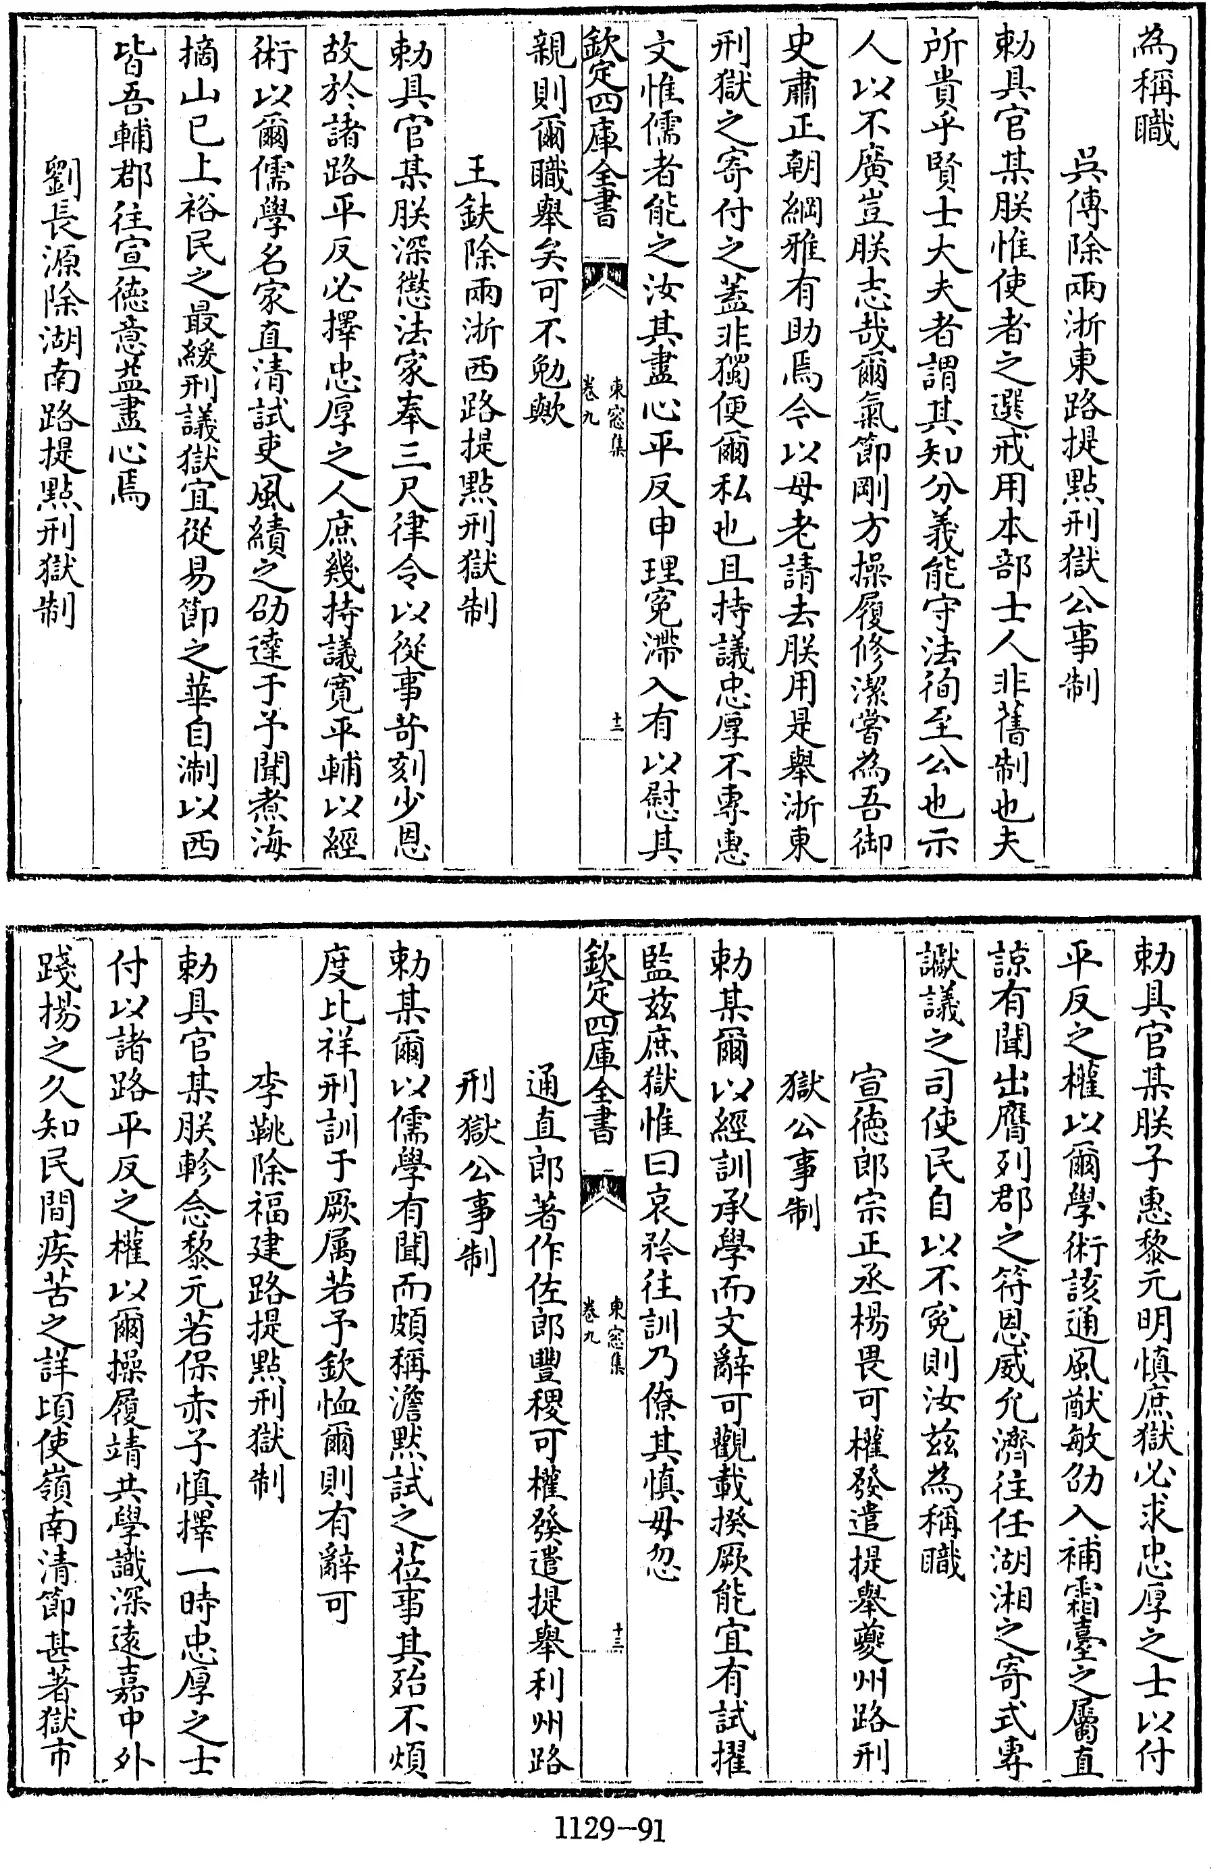 為稱職
吳傳除兩浙東路提點刑獄公事制
勅具官某朕惟使者之選戒用本部士人非舊制也夫
所貴乎賢士大夫者謂其知分義能守法徇至公也示
人以不廣豈朕志哉爾氣節剛方操履修潔嘗為吾御
史肅正朝綱雅有助焉今以母老請去朕用是舉浙東
刑獄之寄付之蓋非獨便爾私也且持議忠厚不專惠
文惟儒者能之汝其盡心平反申理冤滯入有以慰其
欽定四庫全書
東窻集
卷九
十二
親則爾職舉矣可不勉歟
王鈇除兩浙西路提點刑獄制
勅具官某朕深懲法家奉三尺律令以從事苛刻少恩
故於諸路平反必擇忠厚之人庶幾持議寬平輔以經
術以爾儒學名家直清試吏風績之劭達于予聞煮海
摘山已上裕民之最緩刑議獄宜從易節之華自淛以西
皆吾輔郡往宣德意益盡心焉
劉長源除湖南路提點刑獄制
勅具官某朕子惠黎元明慎庶獄必求忠厚之士以付
平反之權以爾學術該通風猷敏劭入補霜臺之屬直
諒有聞出膺列郡之符恩威允濟往任湖湘之寄式專
讞議之司使民自以不冤則汝兹為稱職
宣德郎宗正丞楊畏可權發遣提舉夔州路刑
獄公事制
勅某爾以經訓承學而文辭可觀載揆厥能宜有試擢
監兹庶獄惟曰哀矜往訓乃僚其慎毋忽
欽定四庫全書
東窻集
卷九
十三
通直郎著作佐郎豐稷可權發遣提舉利州路
刑獄公事制
勅某爾以儒學有聞而頗稱澹默試之莅事其殆不煩
度比祥刑訓于厥属若予欽恤爾則有辭可
李鞉除福建路提點刑獄制
勅具官某朕軫念黎元若保赤子慎擇一時忠厚之士
付以諸路平反之權以爾操履靖共學識深遠嘉中外
踐揚之久知民間疾苦之詳頃使嶺南清節甚著獄市
1129-91